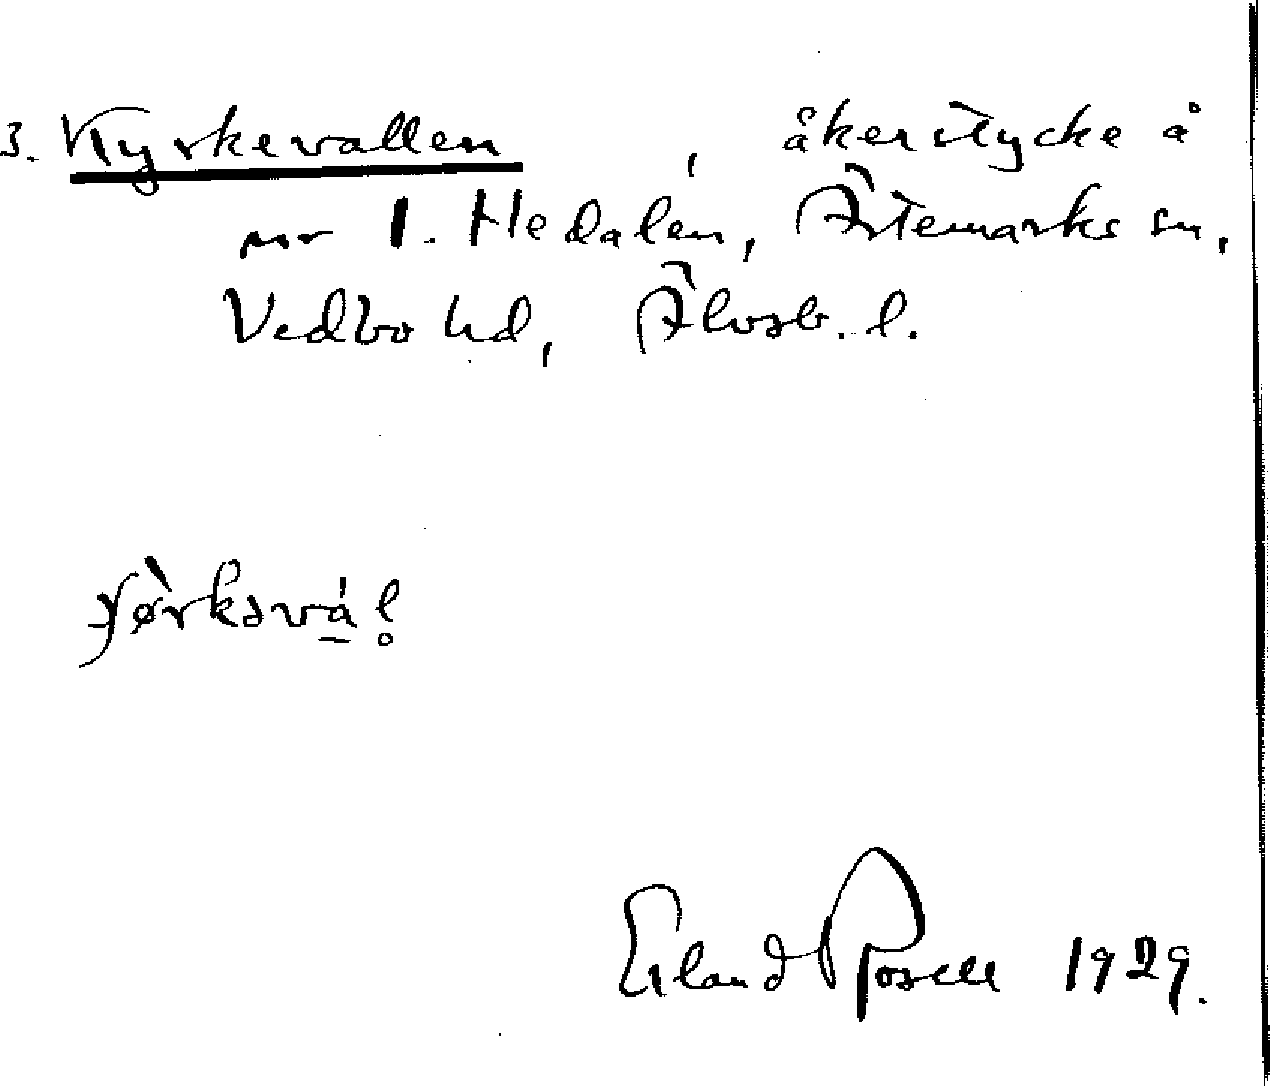 3. Kyrkevallen , åkerstycke å
nr 1. Hedalen, Ärtemarks sn,
Vedbo hd, Älvsb. l.
Erland Rosell 1929.